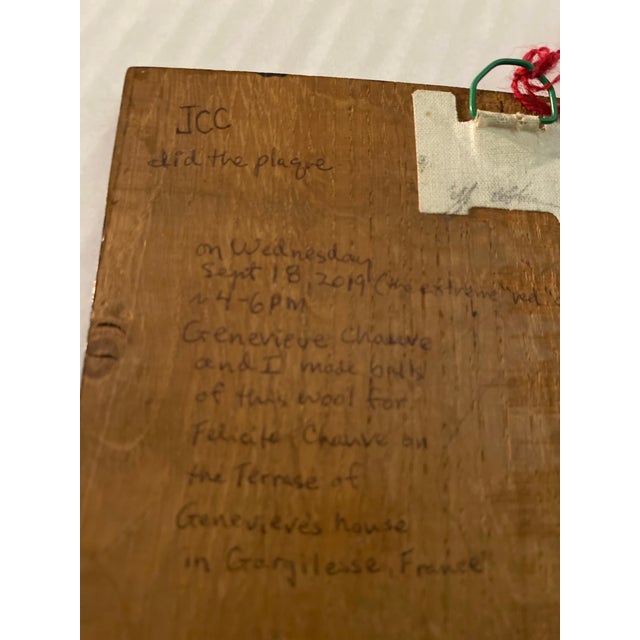 JCC
did the plaque
on Wednesday
Sept 18, 2019 (the extreme red
~ 4-6 PM
Genevieve Chauve
and I made balls
of this wool for
Felicite Chauve on
the Terrase of
Genevieve's house
in Gargilesse, France